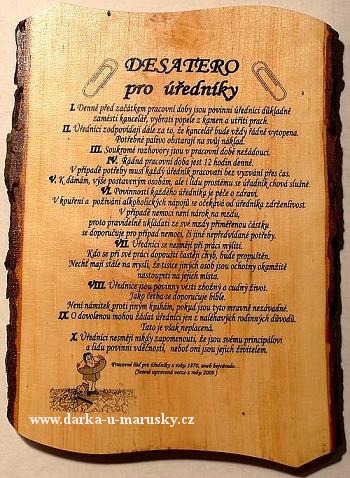 DESATERO
pro úředníky
I. Denně před začátkem pracovní doby jsou povinni úředníci důkladně
zamésti kancelář, vybrati popele z kamen a utříti prach.
II. Úředníci zodpovídají dále za to, že kancelář bude vždy řádně vytopena.
Potřebné palivo obstarají na svůj náklad.
III. Soukromé rozhovory jsou v pracovní době nežádoucí.
IV. Řádná pracovní doba jest 12 hodin denně.
V případě potřeby musí každý úředník pracovati bez vyzvání přes čas.
V. K dámám, výše postaveným osobám, ale i lidu prostému se úředník chová slušně.
VI. Povinností každého úředníka je péče o zdraví.
V kouření a požívání alkoholických nápojů se očekává od úředníka zdrženlivost.
V případě nemoci není nárok na mzdu,
proto pravidelné ukládati ze své mzdy přiměřenou částku
se doporučuje pro případ nemoci, či jiné nepředvídané potřeby.
VII. Úředníci se nesmějí při práci mýliti.
Kdo se při své práci dopouští častěji chyb, bude propuštěn.
Nechť mají stále na mysli, že tisíce jiných osob jsou ochotny okamžitě
nastoupiti na jejich místa.
VIII. Úředníci jsou povinny vésti zbožný a cudný život.
Jako četba se doporučuje bible.
Není námitek proti jiným knihám, pokud jsou tyto mravně nezávadné.
IX. O dovolenou mohou žádat úředníci jen z naléhavých rodinných důvodů.
Tato je však neplacená.
X. Úředníci nesmějí nikdy zapomenouti, že jsou svému principálovi
a lidu povinni vděčností, neboť oni jsou jejich živitelem.
Pracovní řád pro úředníky z roku 1870, aneb bejvávalo...
(Jemně upravená verze z roku 2009 )
www.darka-u-marusky.cz